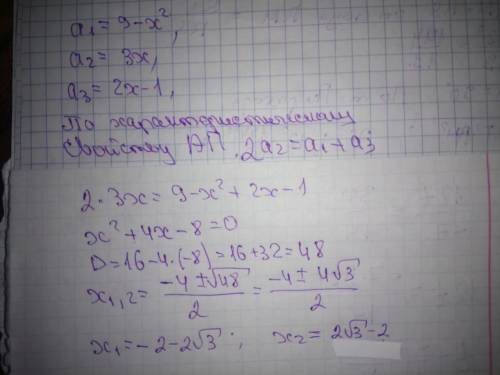 a₁ = 9-x²,
a₂ = 3x,
a₃ = 2x-1,
По характеристическому
свойству АП. 2a₂ = a₁ + a₃
2·3x = 9-x² + 2x-1
x² + 4x - 8 = 0
D = 16 - 4·(-8) = 16 + 32 = 48
x₁,₂ = (-4 ± √48)/2 = (-4 ± 4√3)/2
x₁ = -2 - 2√3 ; x₂ = 2√3 - 2